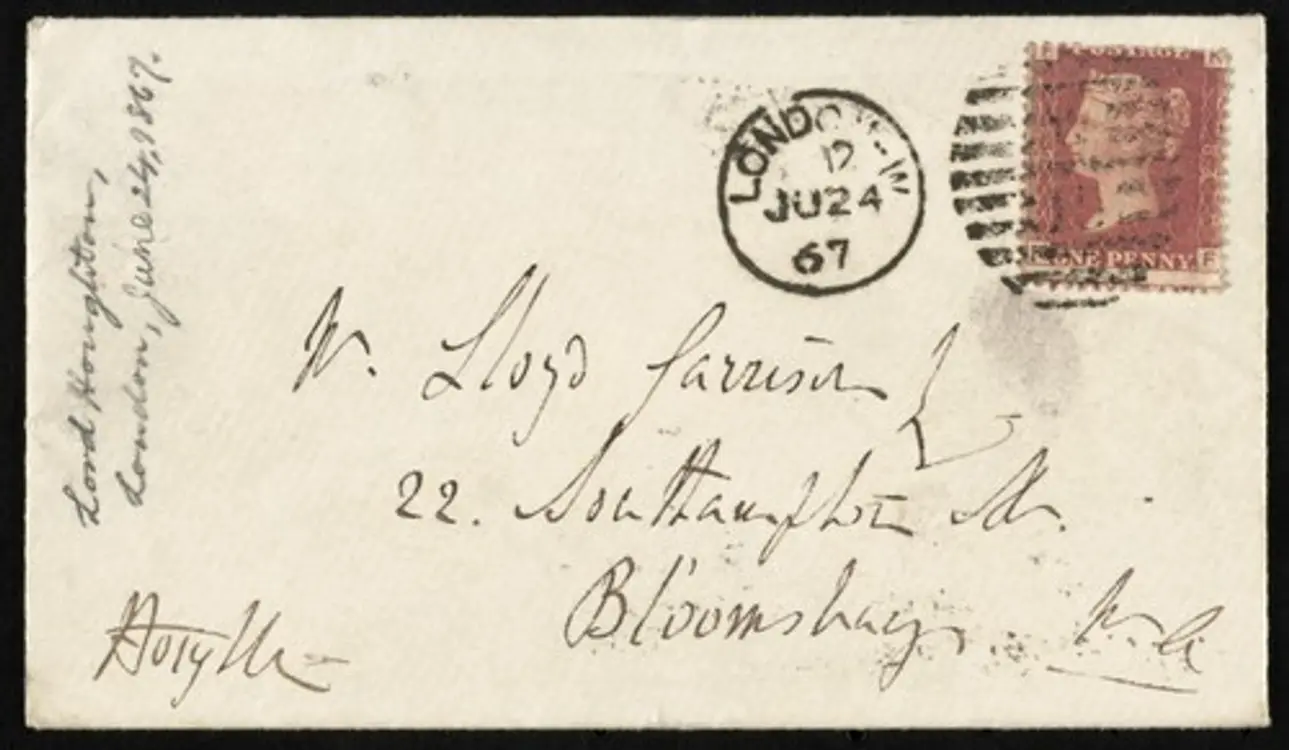 Lord Houghton,
London, June 24, 1867.
LONDON-W
12
JU24
67
POSTAGE
ONE PENNY
F
W. Lloyd Garrison
22. Southampton St.
Bloomsbury
W.C.